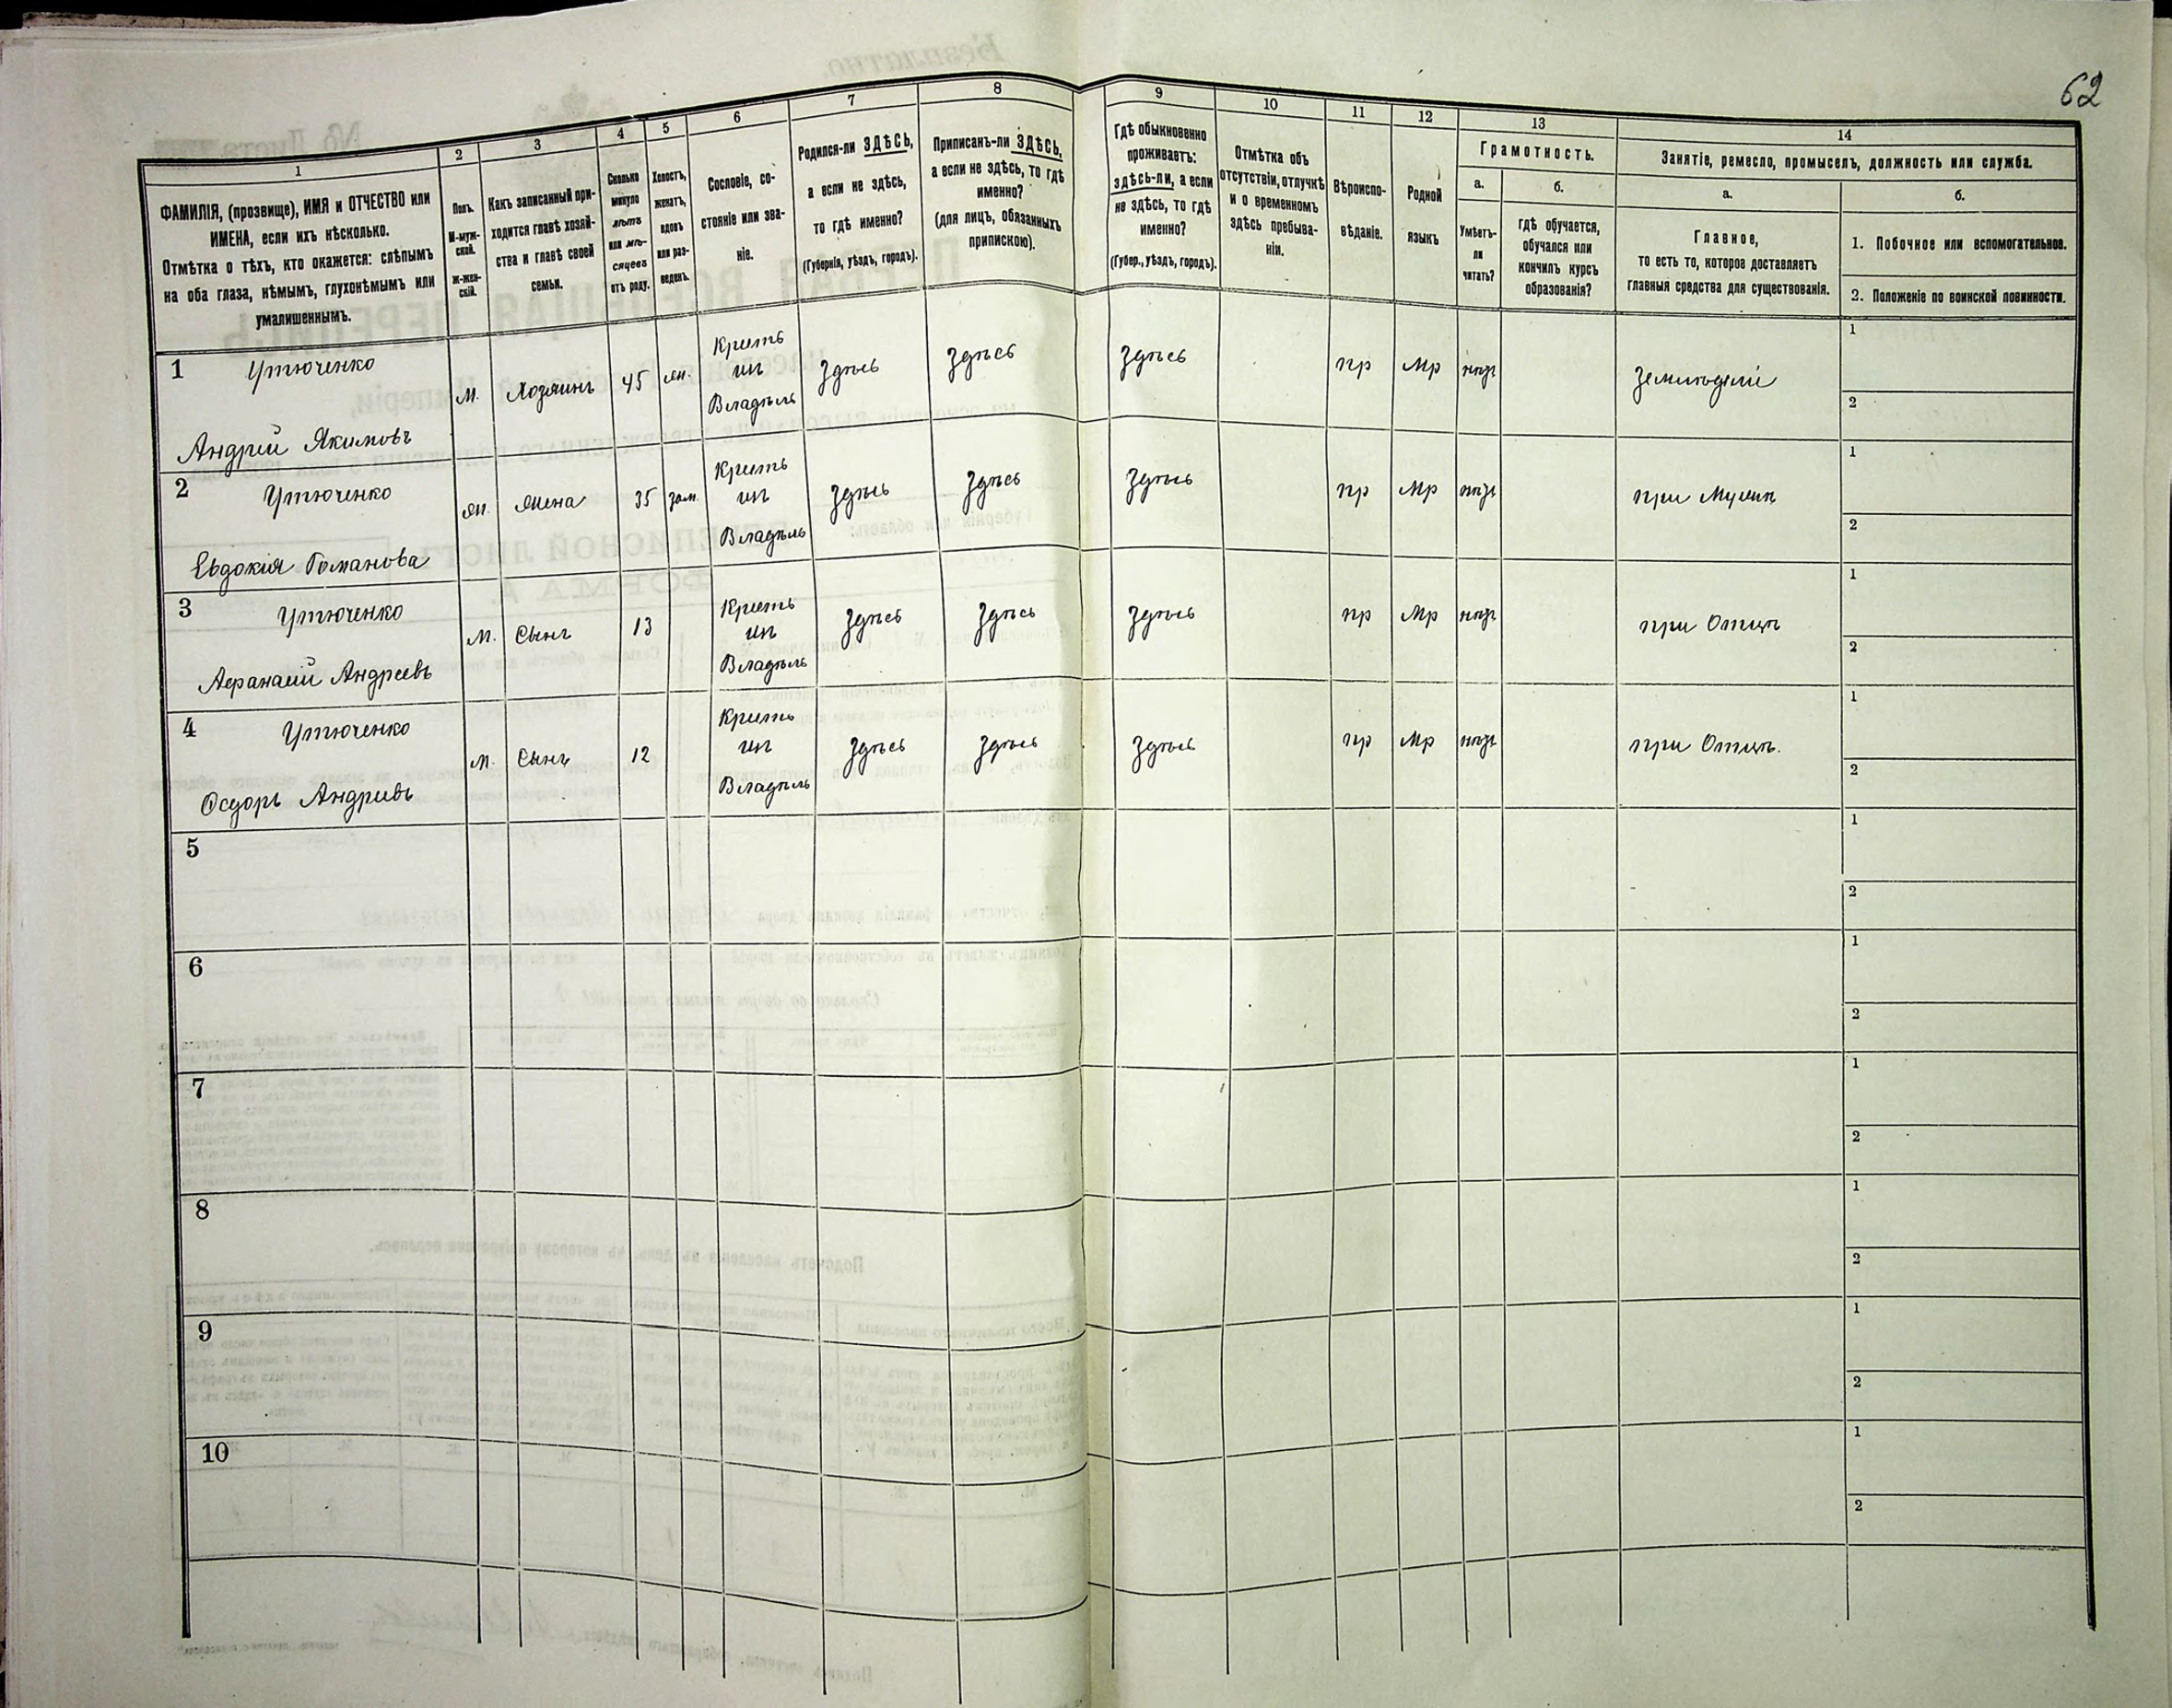 62
1 2 3 4 5 6 7 8 9 10 11 12 13 14
ФАМИЛІЯ, (прозвище), ИМЯ и ОТЧЕСТВО или
ИМЕНА, если ихъ нѣсколько.
Отмѣтка о тѣхъ, кто окажется: слѣпымъ
на оба глаза, нѣмымъ, глухонѣмымъ или
умалишеннымъ.
Полъ.
М-муж-
ской.
Ж-жен-
скій.
Какъ записанный при-
ходится главѣ хозяй-
ства и главѣ своей
семьи.
Сколько
минуло
лѣтъ
или мѣ-
сяцевъ
отъ роду.
Холостъ,
женатъ,
вдовъ
или раз-
веденъ.
Сословіе, со-
стояніе или зва-
ніе.
Родился-ли ЗДѢСЬ,
а если не здѣсь,
то гдѣ именно?
(Губернія, уѣздъ, городъ).
Приписанъ-ли ЗДѢСЬ,
а если не здѣсь, то гдѣ
именно?
(для лицъ, обязанныхъ
припискою).
Гдѣ обыкновенно
проживаетъ:
здѣсь-ли, а если
не здѣсь, то гдѣ
именно?
(Губер., уѣздъ, городъ).
Отмѣтка объ
отсутствіи, отлучкѣ
и о временномъ
здѣсь пребыва-
ніи.
Вѣроиспо-
вѣданіе.
Родной
языкъ
Грамотность.
а.
Умѣетъ-
ли
читать?
б.
гдѣ обучается,
обучался или
кончилъ курсъ
образованія?
Занятіе, ремесло, промыселъ, должность или служба.
а.
Главное,
то есть то, которое доставляетъ
главныя средства для существованія.
б.
1. Побочное или вспомогательное.
2. Положеніе по воинской повинности.
1 Утюченко
Андрей Якимовъ
м. Хозяинъ 45 жн.
Крить
ип
Владѣль
Здѣсь Здѣсь Здѣсь пр Мр нѣтъ Земледѣліе
1
2
2 Утюченко
Евдокія Романова
ж. Жена 35 зам.
Крить
ип
Владѣль
Здѣсь Здѣсь Здѣсь пр Мр нѣтъ при Мужѣ
1
2
3 Утюченко
Афанасій Андреевъ
м. Сынъ 13
Крить
ип
Владѣль
Здѣсь Здѣсь Здѣсь пр Мр нѣтъ при Отцѣ
1
2
4 Утюченко
Ѳедоръ Андреевъ
м. Сынъ 12
Крить
ип
Владѣль
Здѣсь Здѣсь Здѣсь пр Мр нѣтъ при Отцѣ.
1
2
5
1
2
6
1
2
7
1
2
8
1
2
9
1
2
10
1
2